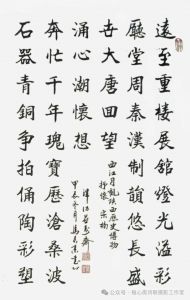 遠至重樓展館燈光溢彩
廳堂周秦漢制韻悠長盛
世大唐回望
石器青銅爭拍俑陶彩塑
奔忙千年瑰寶歷滄桑波
涌心潮懷想
西江月 陝西歷史博物
抒懷
甲辰
公众号